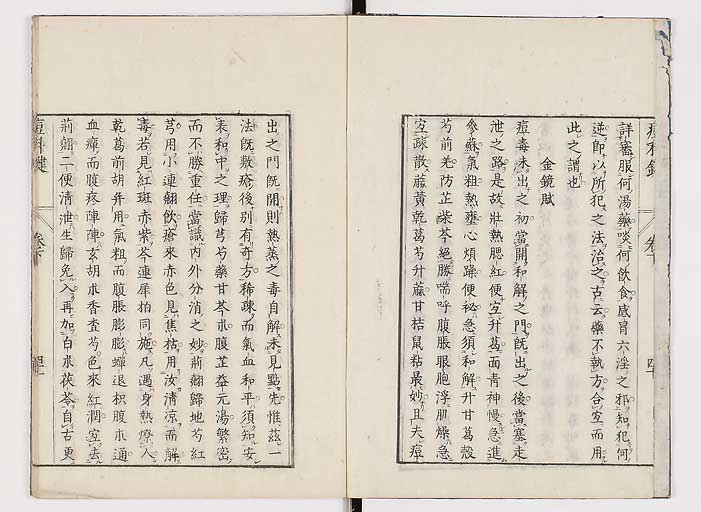 詳審服何湯藥啖何飲食感冒六淫之邪知犯何
逆即以所犯之法治之古云藥不執方合宜而用
此之謂也
金鏡賦
痘毒未出之初當開和解之門既出之後當塞走
泄之路是故壯熱腮紅便宜升葛面青神慢急進
參蘇氣粗熱壅心煩躁便祕急須和解升甘葛殼
芍前羌防芷柴芩絕勝喘呼腹脹眼胞浮肌燥急
宜疎散蔴黃乾葛芍升蔴甘桔鼠粘最妙且夫痘
出之門既開則熱蒸之毒自解未見點先惟茲一
法既敷瘡後別有奇方稀疎而氣血和平須知安
表和中之理歸芎芍藥甘芩朮腹芷益元湯繁密
而不勝重任當識內外分消之妙荊翹歸地芍紅
芎用小連翹飲瘡來赤色見焦枯用汝清涼而解
毒若見紅斑赤紫芩連犀柏同施凡遇身熱療人
乾葛前胡并用氣粗而腹脹膨膨蟬退枳腹朮通
血瘰而腹疼陣陣玄胡木香查芍色來紅潤宜去
荊翹二便清泄生歸免入再加白朮茯苓自古更
痘科鍵
卷下